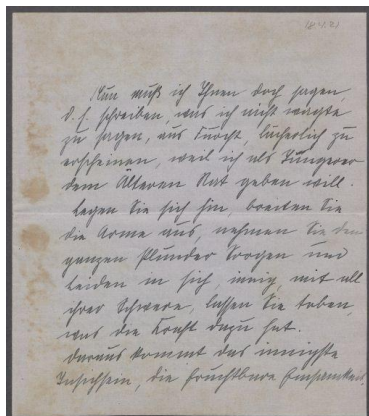 18.4.21
Nun muß ich Ihnen doch sagen,
d. h. schreiben, was ich nicht wagte
zu sagen, aus Furcht, lächerlich zu
erscheinen, weil ich als Jüngerer
dem Älteren Rat geben will.
Legen Sie sich hin, breiten Sie
die Arme aus, nehmen Sie den
ganzen Plunder Sorgen und
Leiden in sich, innig, mit all
ihrer Schwere, lassen Sie toben,
was die Kraft dazu hat.
Daraus kommt das innigste
Insichsein, die fruchtbare Einsamkeit,